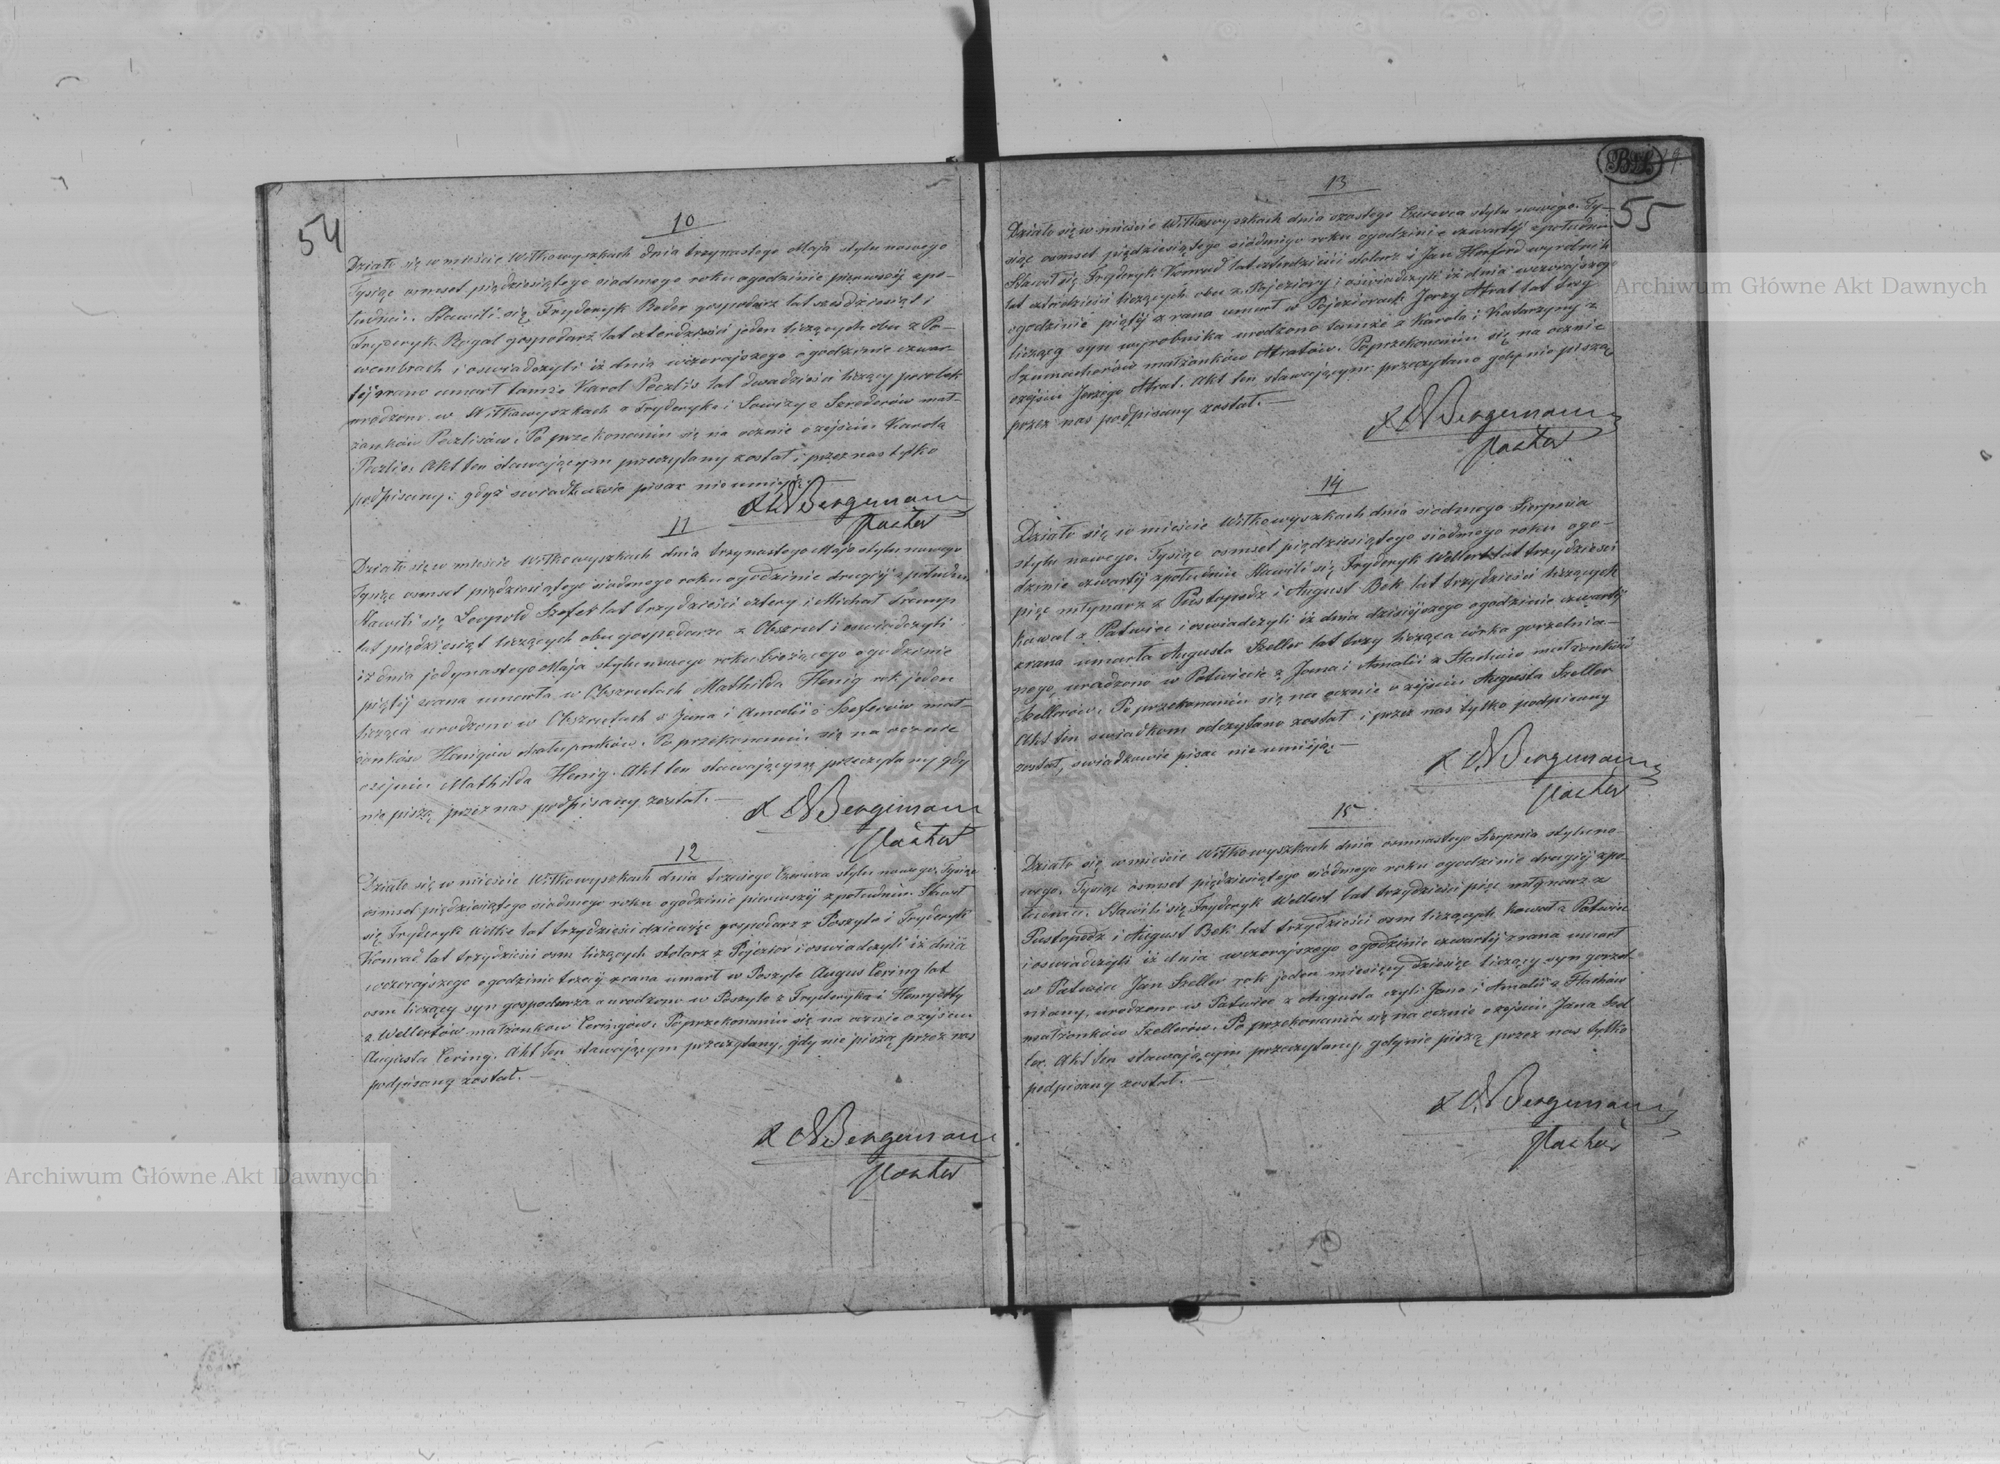 54
10
Działo się w mieście Wiłkowyszkach dnia trzynastego Maja stylu nowego
Tysiąc osmset piędziesiątego siodmego roku ogodzinie pierwszéj zpo-
łudniu. Stawili się Fryderyk Beder gospodarz lat sześdziesiąt i
Fryderyk Rogal gospodarz lat czterdzieści jeden liczących oba z Po-
i oswiadczyli iż dnia wczorajszego ogodzinie czwar-
téj zrana umarł tamże Karol Peczlis lat dwadzieścia liczący parobek
urodzony w Wiłkowyszkach z Fryderyka i Szrederów mał-
żonków Peczlisów. Po przekonaniu się na ocznie o zejściu Karola
Peczlis, Akt ten stawającym przeczytany został i przez nas tylko
podpisany: gdyż swiadkowie pisać nie umieją.
Bergemann
Pastor
11
Działo się w mieście Wiłkowyszkach dnia trzynastego Maja stylu nowego
Tysiąc osmset piędziesiątego siodmego roku ogodzinie drugiéj zpołudniu,
Stawili się Leopold Szefer lat trzydzieści cztery i Michał
lat piędziesiąt liczących oba gospodarze z Obszrut i oswiadczyli
iż dnia jedynastego Maja stylu nowego roku bieżącego ogodzinie
piątéj zrana umarła w Obszrutach Mathilda Henig rok jeden
licząca urodzona w Obszrutach z Jana i Amelii z Szeferów mał-
żonków Henigów chałupników. Po przekonaniu się na ocznie
ozejściu Mathilda Henig. Akt ten stawającym przeczytany gdy
nie piszą przez nas podpisany został. —
Bergemann
Pastor
12
Działo się w mieście Wiłkowyszkach dnia trzeciego Czerwca stylu nowego, Tysiąc
osmset piędziesiątego siodmego roku ogodzinie pierwszéj zpołudniu. Stawił
się Fryderyk Wilke lat trzydzieści dziewięć gospodarz z Poszyle i Fryderyk
Konrad lat trzydzieści osm liczących stolarz z Pojezior i oswiadczyli iż dnia
wczorajszego ogodzinie trzeciéj zrana umarł w Poszyle Augus Cering lat
osm liczący syn gospodarza urodzony w Poszyle z Fryderyka i Henryetty
z Wellertów małżonków Ceringów. Po przekonaniu się na ocznie ozejściu
Augusta Cering. Akt ten stawającym przeczytany, gdy nie piszą przez nas
podpisany został. —
Bergemann
Pastor
55
13
Działo się w mieście Wiłkowyszkach dnia szóstego Czerwca stylu nowego. Ty-
siąc osmset piędziesiątego siódmego roku ogodzinie czwartéj zpołudniu
Stawił się Fryderyk Konrad lat czterdzieści stolarz i Jan wyrobnik
lat czterdzieści liczących oba z Pojeziory i oświadczyli iż dnia wczorajszego
ogodzinie piątéj zrana umarł w Pojeziorach Jerzy Atrat lat trzy
liczący syn wyrobnika urodzony tamże z Karola i Katarzyny z
Szumacherów małżonków Atratów. Po przekonaniu się na ocznie
ozejściu Jerzego Atrat. Akt ten stawającym przeczytany gdy nie piszą
przez nas podpisany został. —
Bergemann
Pastor
14
Działo się w mieście Wiłkowyszkach dnia siodmego Sierpnia
stylu nowego, Tysiąc osmset piędziesiątego siodmego roku ogo-
dzinie czwartéj zpołudniu Stawili się Fryderyk Wellert lat trzydzieści
pięć młynarz z Pustopedz i August Bek lat trzydzieści liczących
kowal z Patwiec i oswiadczyli iż dnia dzisiejszego ogodzinie czwartéj
zrana umarła Augusta Szeller lat trzy licząca córka gorzelnia-
nego, urodzona w Patwiecie z Jana i Amalii z małżonków
Szellerów. Po przekonaniu się na ocznie o zejściu Augusta Szeller
Akt ten swiadkom odczytano został i przez nas tylko podpisany
został, swiadkowie pisać nie umieją. —
Bergemann
Pastor
15
Działo się w mieście Wiłkowyszkach dnia osmnastego Sierpnia stylu no-
wego, Tysiąc osmset piędziesiątego siódmego roku ogodzinie drugiéj zpo-
łudniu. Stawili się Fryderyk Wellert lat trzydzieści pięć młynarz z
Pustopedz i August Bek lat trzydzieści osm liczących, kowal z Patwiec
i oswiadczyli iż dnia wczorajszego ogodzinie czwartéj zrana umarł
w Patwiec Jan Szeller rok jeden miesięcy dziesięć liczący syn gorzel-
niany, urodzony w Patwiec z Augusta czyli Jana i Amalii z
małżonków Szellerów. Po przekonaniu się na ocznie o zejściu Jana Szel
ler. Akt ten stawającym przeczytany, gdy nie piszą przez nas tylko
podpisany został. —
Bergemann
Pastor
Archiwum Główne Akt Dawnych
Archiwum Główne Akt Dawnych